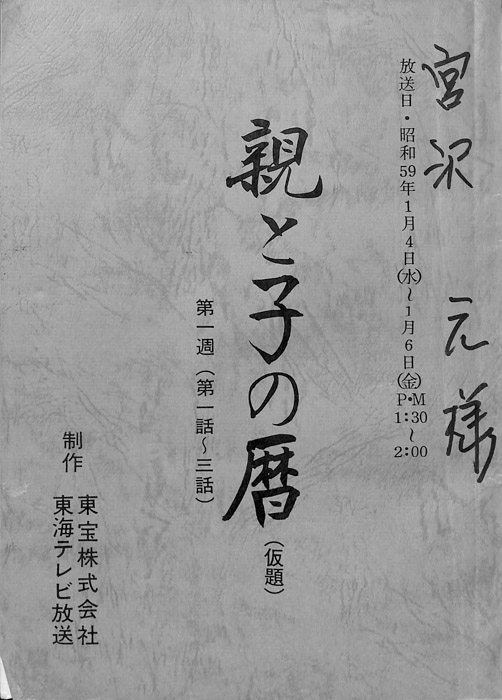 宮沢 元様
放送日・昭和59年1月4日(水)~1月6日(金)
P・M
1:30~2:00
親と子の暦(仮題)
第一週(第一話~三話)
制作 東宝株式会社
東海テレビ放送